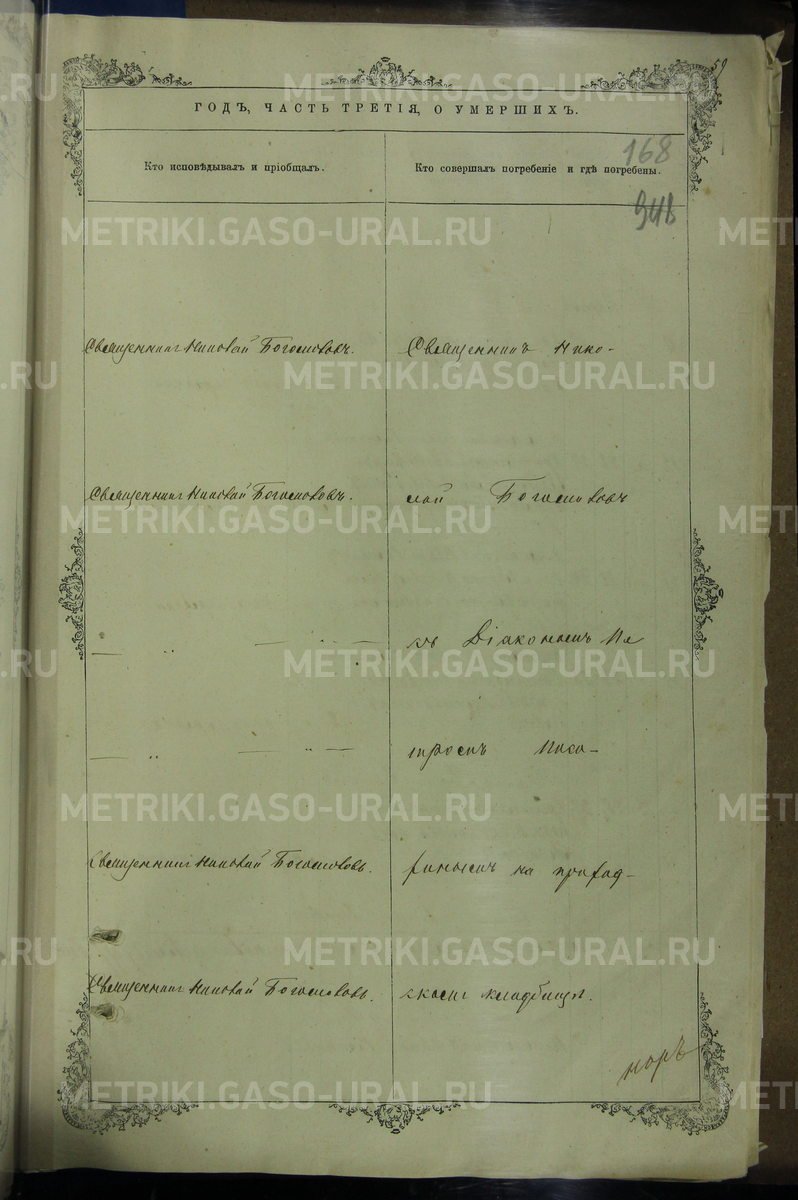 59
ГОДЪ, ЧАСТЬ ТРЕТІЯ, О УМЕРШИХЪ.
Кто исповѣдывалъ и пріобщалъ.
Кто совершалъ погребеніе и гдѣ погребены.
168
Священникъ Николай Богословъ.
Священникъ Нико-
Священникъ Николай Богословъ.
лай Богословъ
съ Діакономъ
на приход-
Священникъ Николай Богословъ.
Священникъ Николай Богословъ.
скомъ кладбищѣ.
METRIKI.GASO-URAL.RU